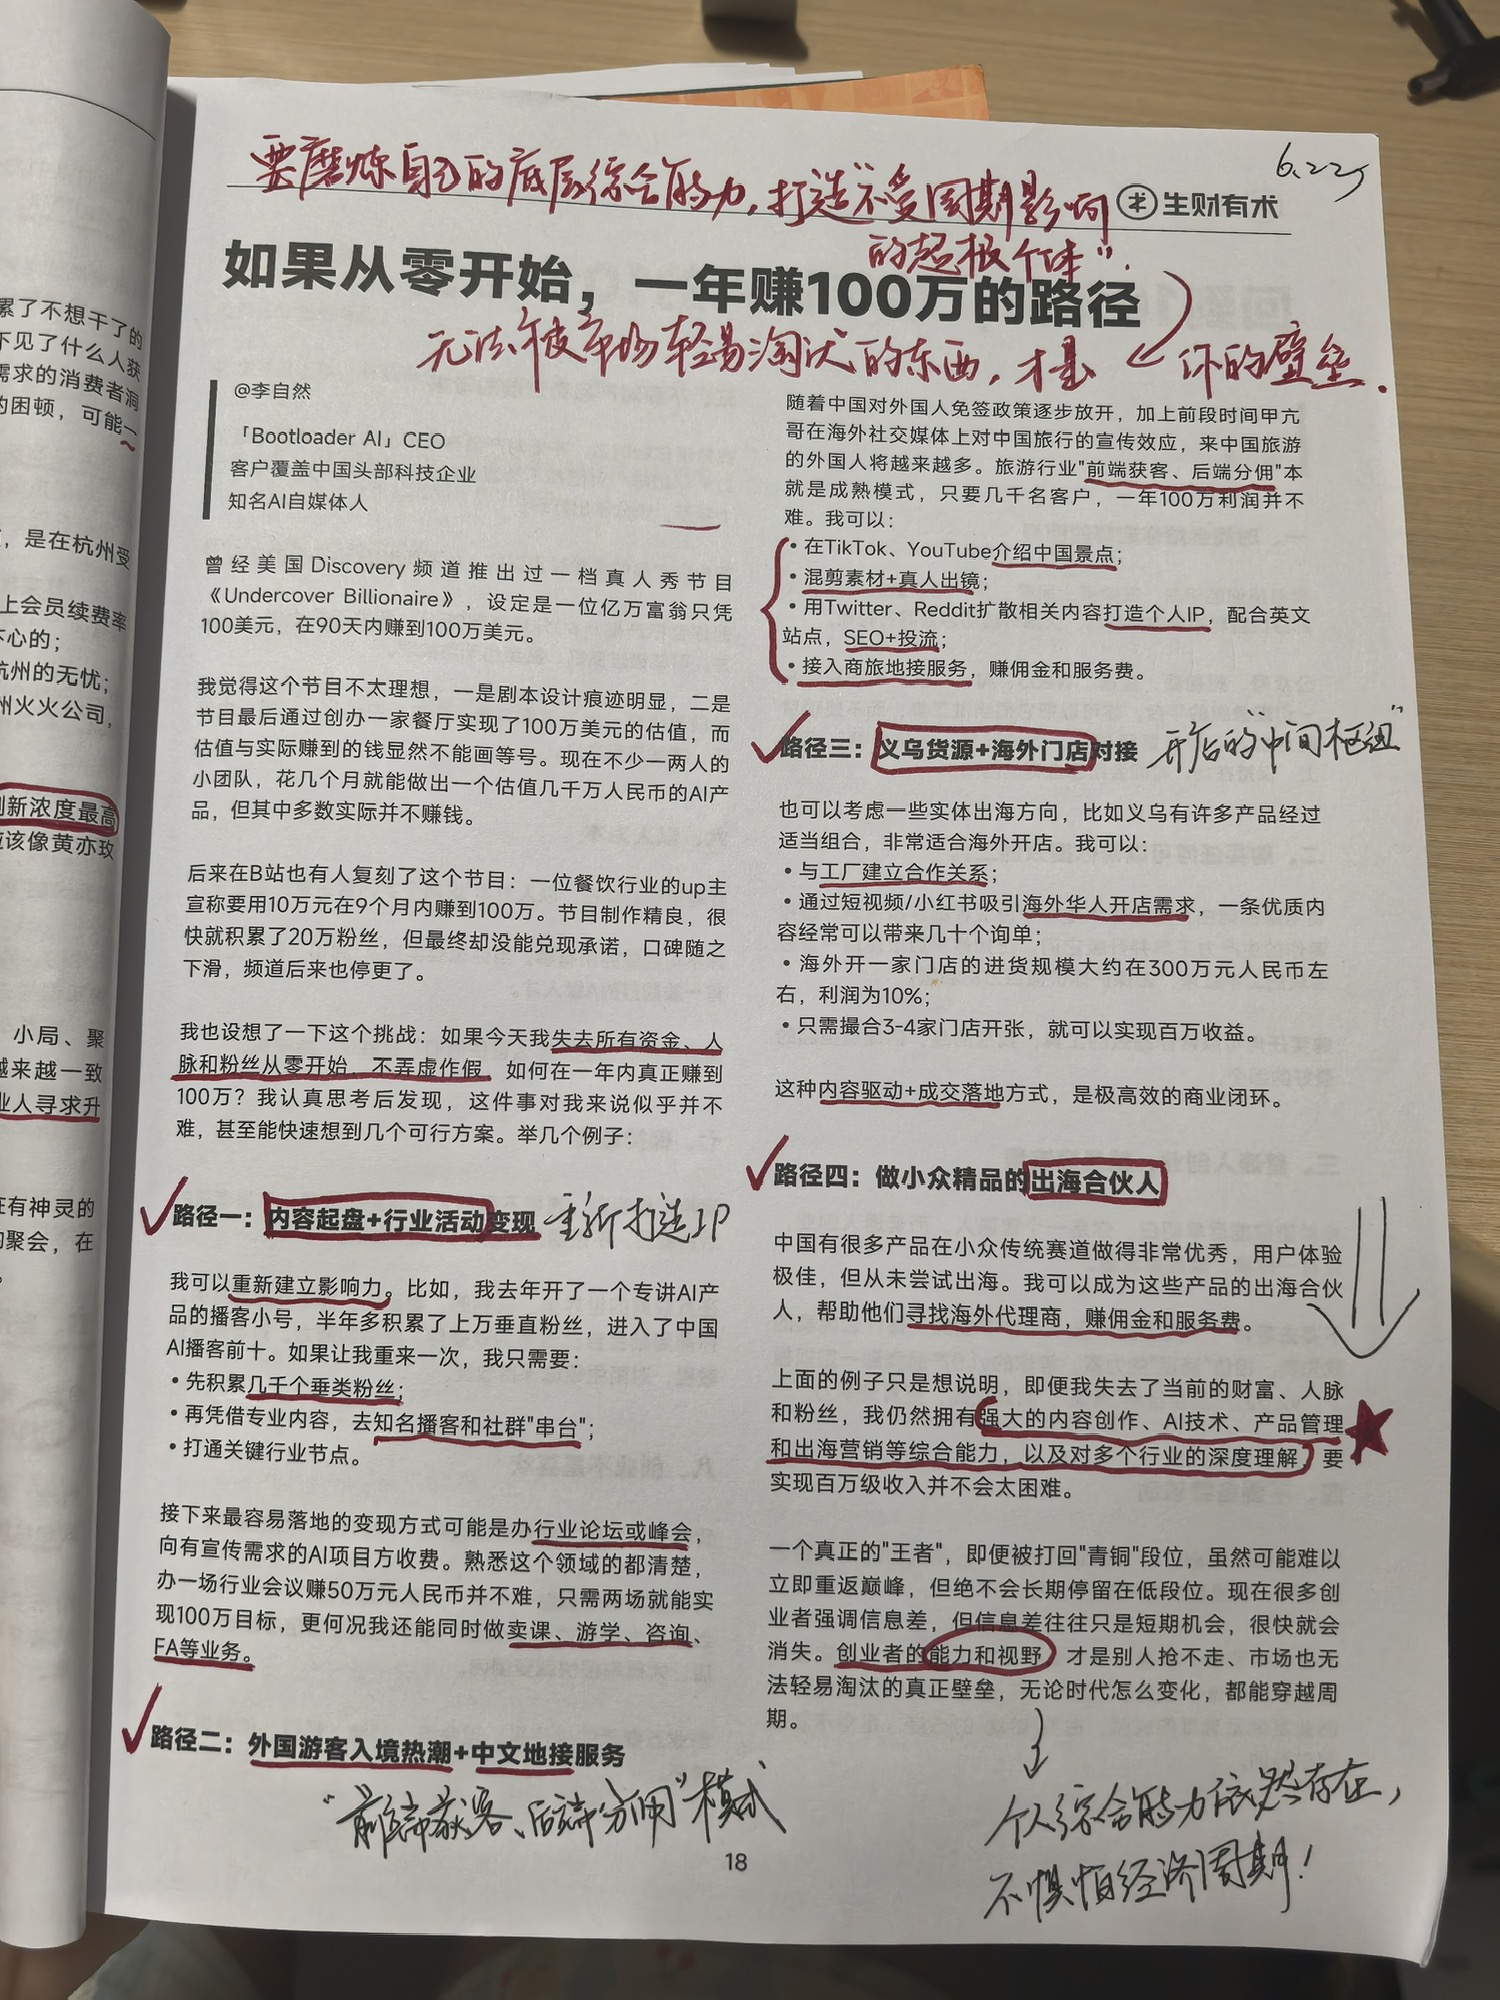 累了不想干了的
不见了什么人获
需求的消费者洞
的困顿，可能一
是在杭州受
上会员续费率
不心的；
杭州的无忧；
州火火公司，
创新浓度最高
应该像黄亦玫
小局、聚
越来越一致
业人寻求升
在有神灵的
的聚会，在
6.225
要磨炼自己的底层综合能力，打造"不受周期影响
的超级个体"．
生财有术
如果从零开始，一年赚100万的路径
无法被市场轻易淘汰的东西，才是 你的壁垒．
@李自然
「Bootloader AI」CEO
客户覆盖中国头部科技企业
知名AI自媒体人
曾经美国Discovery频道推出过一档真人秀节目
《Undercover Billionaire》，设定是一位亿万富翁只凭
100美元，在90天内赚到100万美元。
我觉得这个节目不太理想，一是剧本设计痕迹明显，二是
节目最后通过创办一家餐厅实现了100万美元的估值，而
估值与实际赚到的钱显然不能画等号。现在不少一两人的
小团队，花几个月就能做出一个估值几千万人民币的AI产
品，但其中多数实际并不赚钱。
后来在B站也有人复刻了这个节目：一位餐饮行业的up主
宣称要用10万元在9个月内赚到100万。节目制作精良，很
快就积累了20万粉丝，但最终却没能兑现承诺，口碑随之
下滑，频道后来也停更了。
我也设想了一下这个挑战：如果今天我失去所有资金、人
脉和粉丝从零开始，不弄虚作假，如何在一年内真正赚到
100万？我认真思考后发现，这件事对我来说似乎并不
难，甚至能快速想到几个可行方案。举几个例子：
路径一：内容起盘+行业活动变现 重新打造IP
我可以重新建立影响力。比如，我去年开了一个专讲AI产
品的播客小号，半年多积累了上万垂直粉丝，进入了中国
AI播客前十。如果让我重来一次，我只需要：
• 先积累几千个垂类粉丝；
• 再凭借专业内容，去知名播客和社群"串台"；
• 打通关键行业节点。
接下来最容易落地的变现方式可能是办行业论坛或峰会，
向有宣传需求的AI项目方收费。熟悉这个领域的都清楚，
办一场行业会议赚50万元人民币并不难，只需两场就能实
现100万目标，更何况我还能同时做卖课、游学、咨询、
FA等业务。
路径二：外国游客入境热潮+中文地接服务
"前端获客、后端分佣"模式
随着中国对外国人免签政策逐步放开，加上前段时间甲亢
哥在海外社交媒体上对中国旅行的宣传效应，来中国旅游
的外国人将越来越多。旅游行业"前端获客、后端分佣"本
就是成熟模式，只要几千名客户，一年100万利润并不
难。我可以：
• 在TikTok、YouTube介绍中国景点；
• 混剪素材+真人出镜；
• 用Twitter、Reddit扩散相关内容打造个人IP，配合英文
站点，SEO+投流；
• 接入商旅地接服务，赚佣金和服务费。
路径三：义乌货源+海外门店对接 开店的"中间枢纽"
也可以考虑一些实体出海方向，比如义乌有许多产品经过
适当组合，非常适合海外开店。我可以：
• 与工厂建立合作关系；
• 通过短视频/小红书吸引海外华人开店需求，一条优质内
容经常可以带来几十个询单；
• 海外开一家门店的进货规模大约在300万元人民币左
右，利润为10%；
• 只需撮合3-4家门店开张，就可以实现百万收益。
这种内容驱动+成交落地方式，是极高效的商业闭环。
路径四：做小众精品的出海合伙人
中国有很多产品在小众传统赛道做得非常优秀，用户体验
极佳，但从未尝试出海。我可以成为这些产品的出海合伙
人，帮助他们寻找海外代理商，赚佣金和服务费。
上面的例子只是想说明，即便我失去了当前的财富、人脉
和粉丝，我仍然拥有强大的内容创作、AI技术、产品管理
和出海营销等综合能力，以及对多个行业的深度理解，要
实现百万级收入并不会太困难。
一个真正的"王者"，即便被打回"青铜"段位，虽然可能难以
立即重返巅峰，但绝不会长期停留在低段位。现在很多创
业者强调信息差，但信息差往往只是短期机会，很快就会
消失。创业者的能力和视野，才是别人抢不走、市场也无
法轻易淘汰的真正壁垒，无论时代怎么变化，都能穿越周
期。
个人综合能力依然存在，
不惧怕经济周期！
18